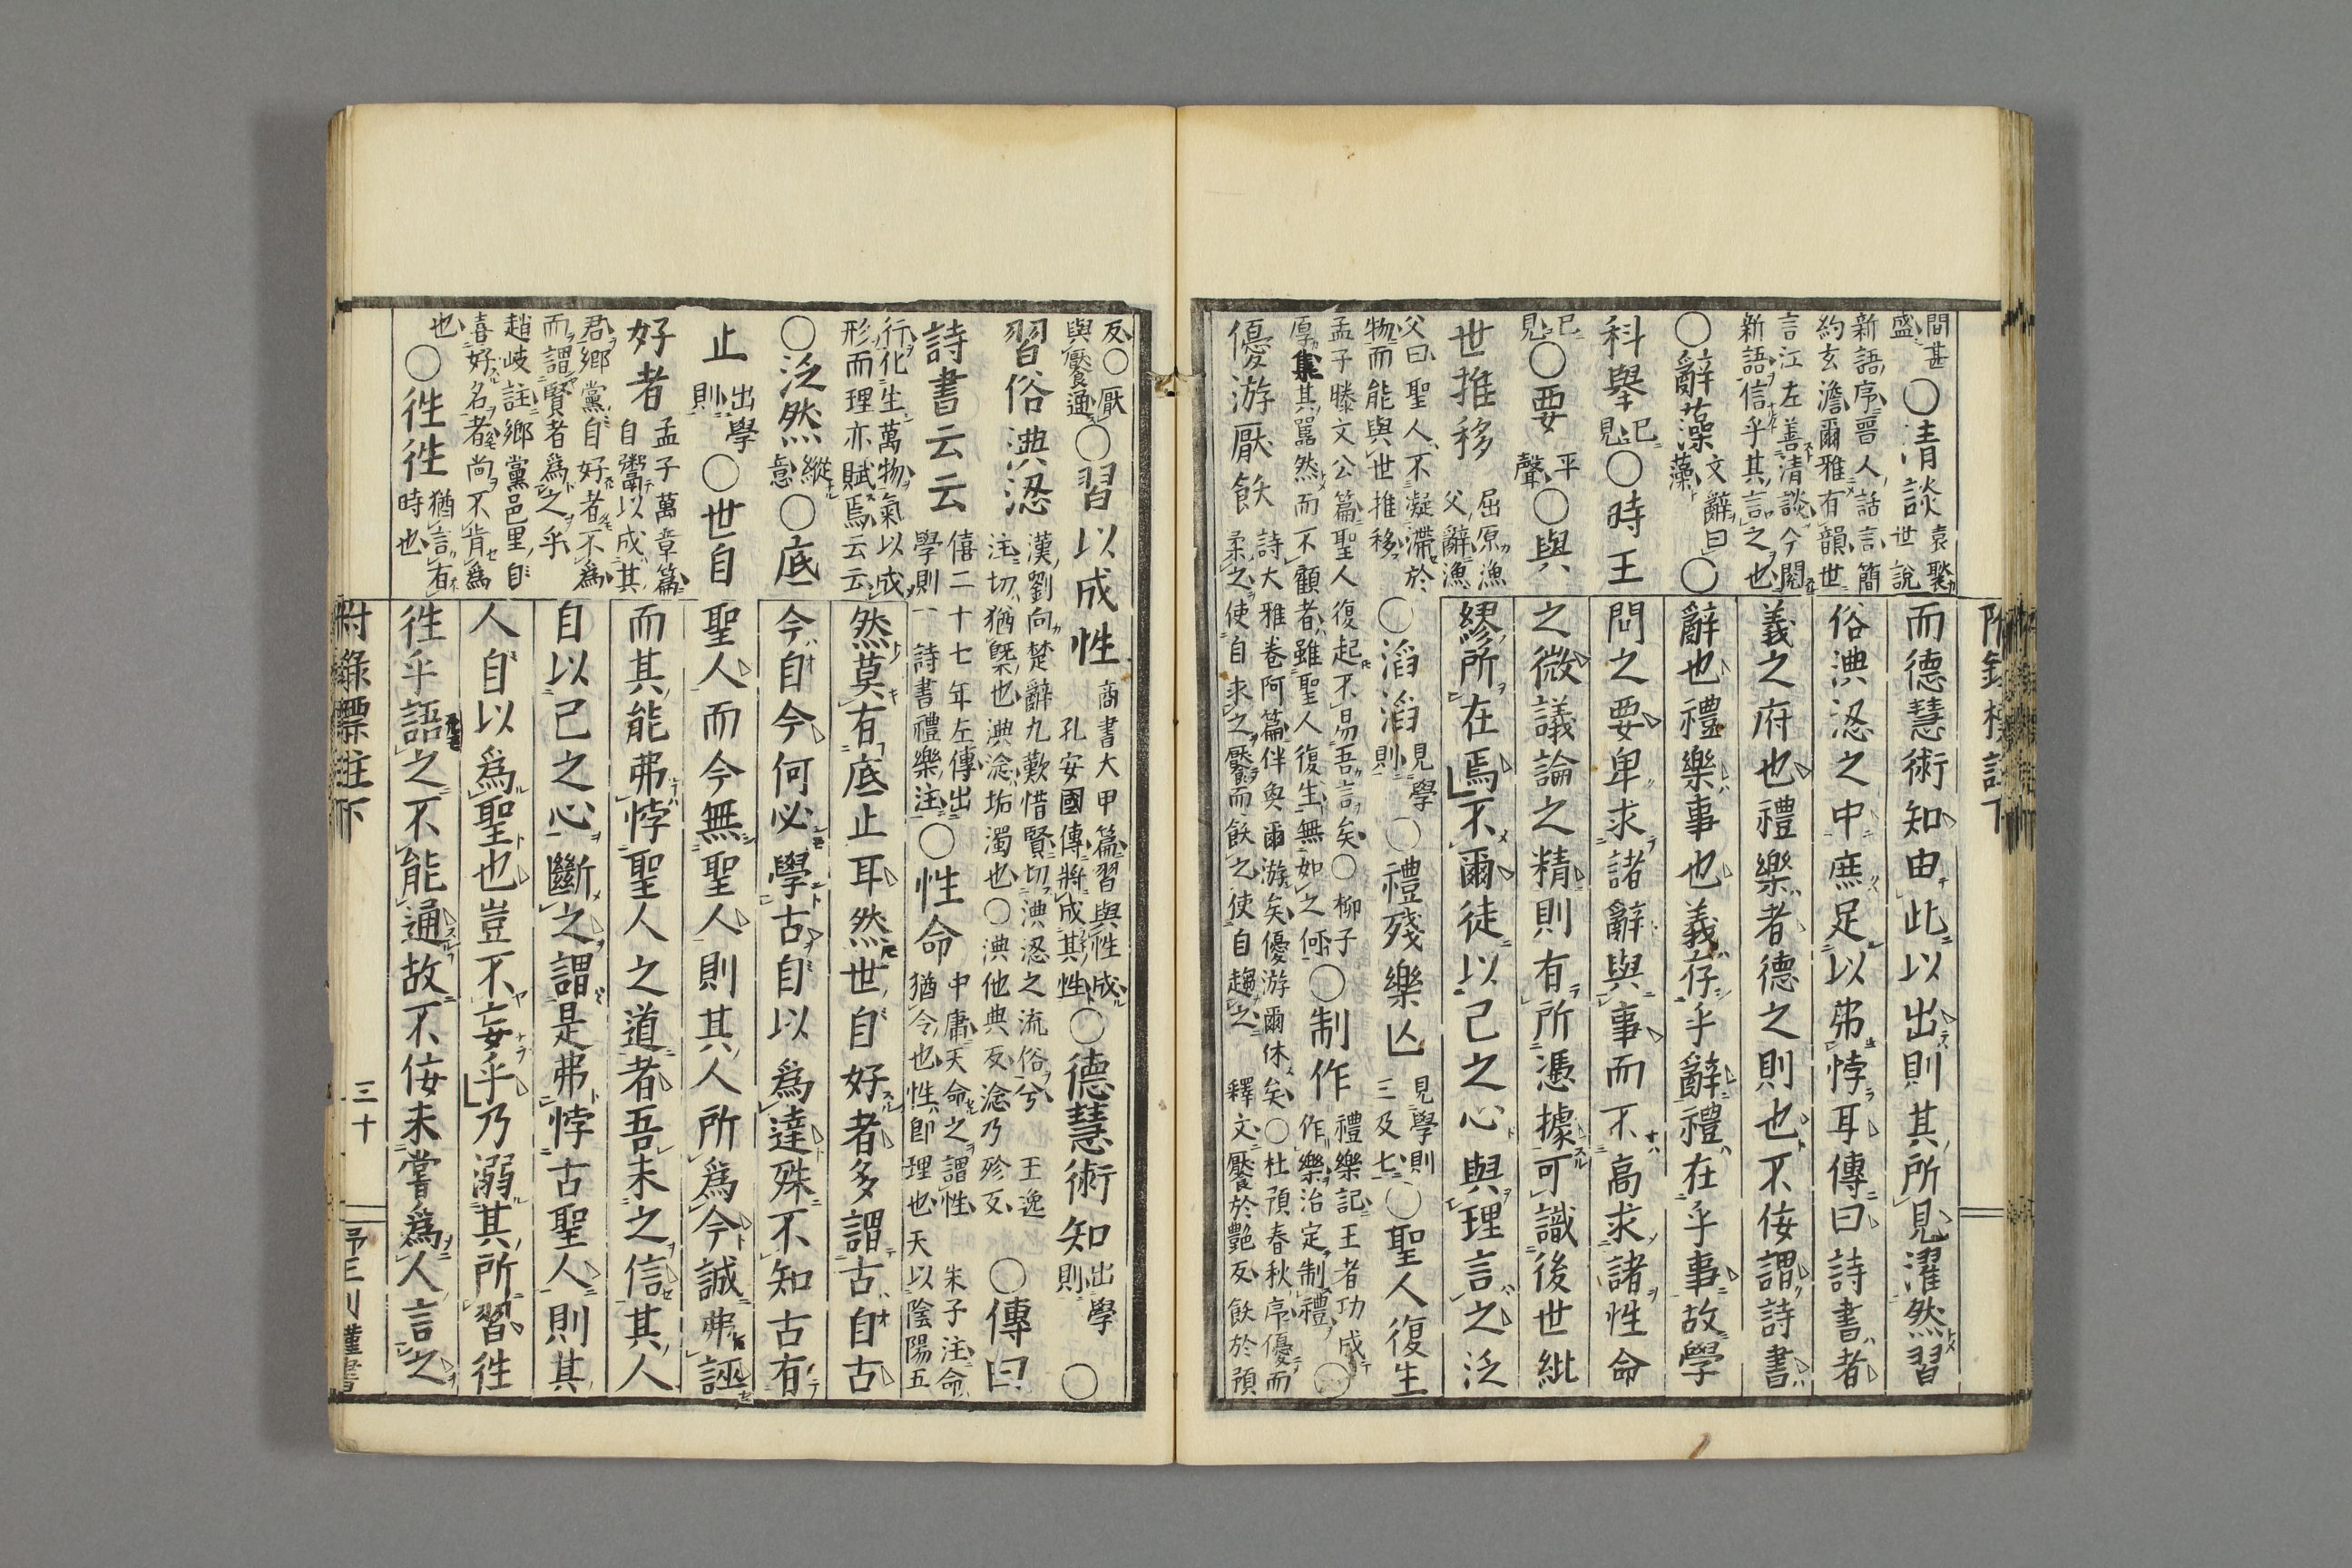 間甚
盛
○清談
袁褧
世説
新語序晋人話言簡
約玄澹爾雅有韻世
言江左善清談今閲
新語信乎其言之也
○辭藻 文辭曰
藻 ○
科舉 已
見 ○時王
已
見 ○要 平
聲 ○與
世推移 屈原漁
父辭漁
父曰聖人不凝滯於
物而能與世推移
附錄標註下
而德慧術知由此以出則其所見濯然習
俗淟涊之中庶足以弗悖耳傳曰詩書者
義之府也禮樂者德之則也不佞謂詩書
辭也禮樂事也義存乎辭禮在乎事故學
問之要卑求諸辭與事而不高求諸性命
之微議論之精則有所憑據可識後世紕
繆所在焉不爾徒以己之心與理言之泛
○滔滔 見學
則 ○禮殘樂亾 見學則
三及七 ○聖人復生
孟子滕文公篇聖人復起不易吾言矣○柳子
厚集其嚣然而不顧者雖聖人復生無如之何 ○制作 禮樂記王者功成
作樂治定制禮 ○
優游厭飫 詩大雅卷阿篇伴奐爾游矣優游爾休矣○杜預春秋序優而
柔之使自求之饜而飫之使自趨之 釋文饜於艷反飫於預
反○厭
與饜通 ○習以成性 商書大甲篇習與性成
孔安國傳將成其性 ○德慧術知 出學
則 ○
習俗淟涊 漢劉向楚辭九歎惜賢切淟涊之流俗兮 王逸
注切猶槩也淟涊垢濁也○淟他典反涊乃殄反 ○傳曰
詩書云云 僖二十七年左傳出
學則一 詩書禮樂注 ○性命 中庸天命之謂性 朱子注命
猶令也性即理也天以陰陽五
行化生萬物氣以成
形而理亦賦焉云云
○泛然 縱
意 ○底
止 出學
則 ○世自
好者 孟子萬章篇
自鬻以成其
君鄉黨自好者不為
而謂賢者為之乎
趙岐註鄉黨邑里自
喜好名者尚不肯為
也 ○徃徃 猶言有
時也
然莫有底止耳然世自好者多謂古自古
今自今何必學古自以為達殊不知古有
聖人而今無聖人則其人所為今誠弗誣
而其能弗悖聖人之道者吾未之信其人
自以己之心斷之謂是弗悖古聖人則其
人自以為聖也豈不妄乎乃溺其所習徃
徃乎語之不能通故不佞未嘗為人言之
附錄標註下
三十